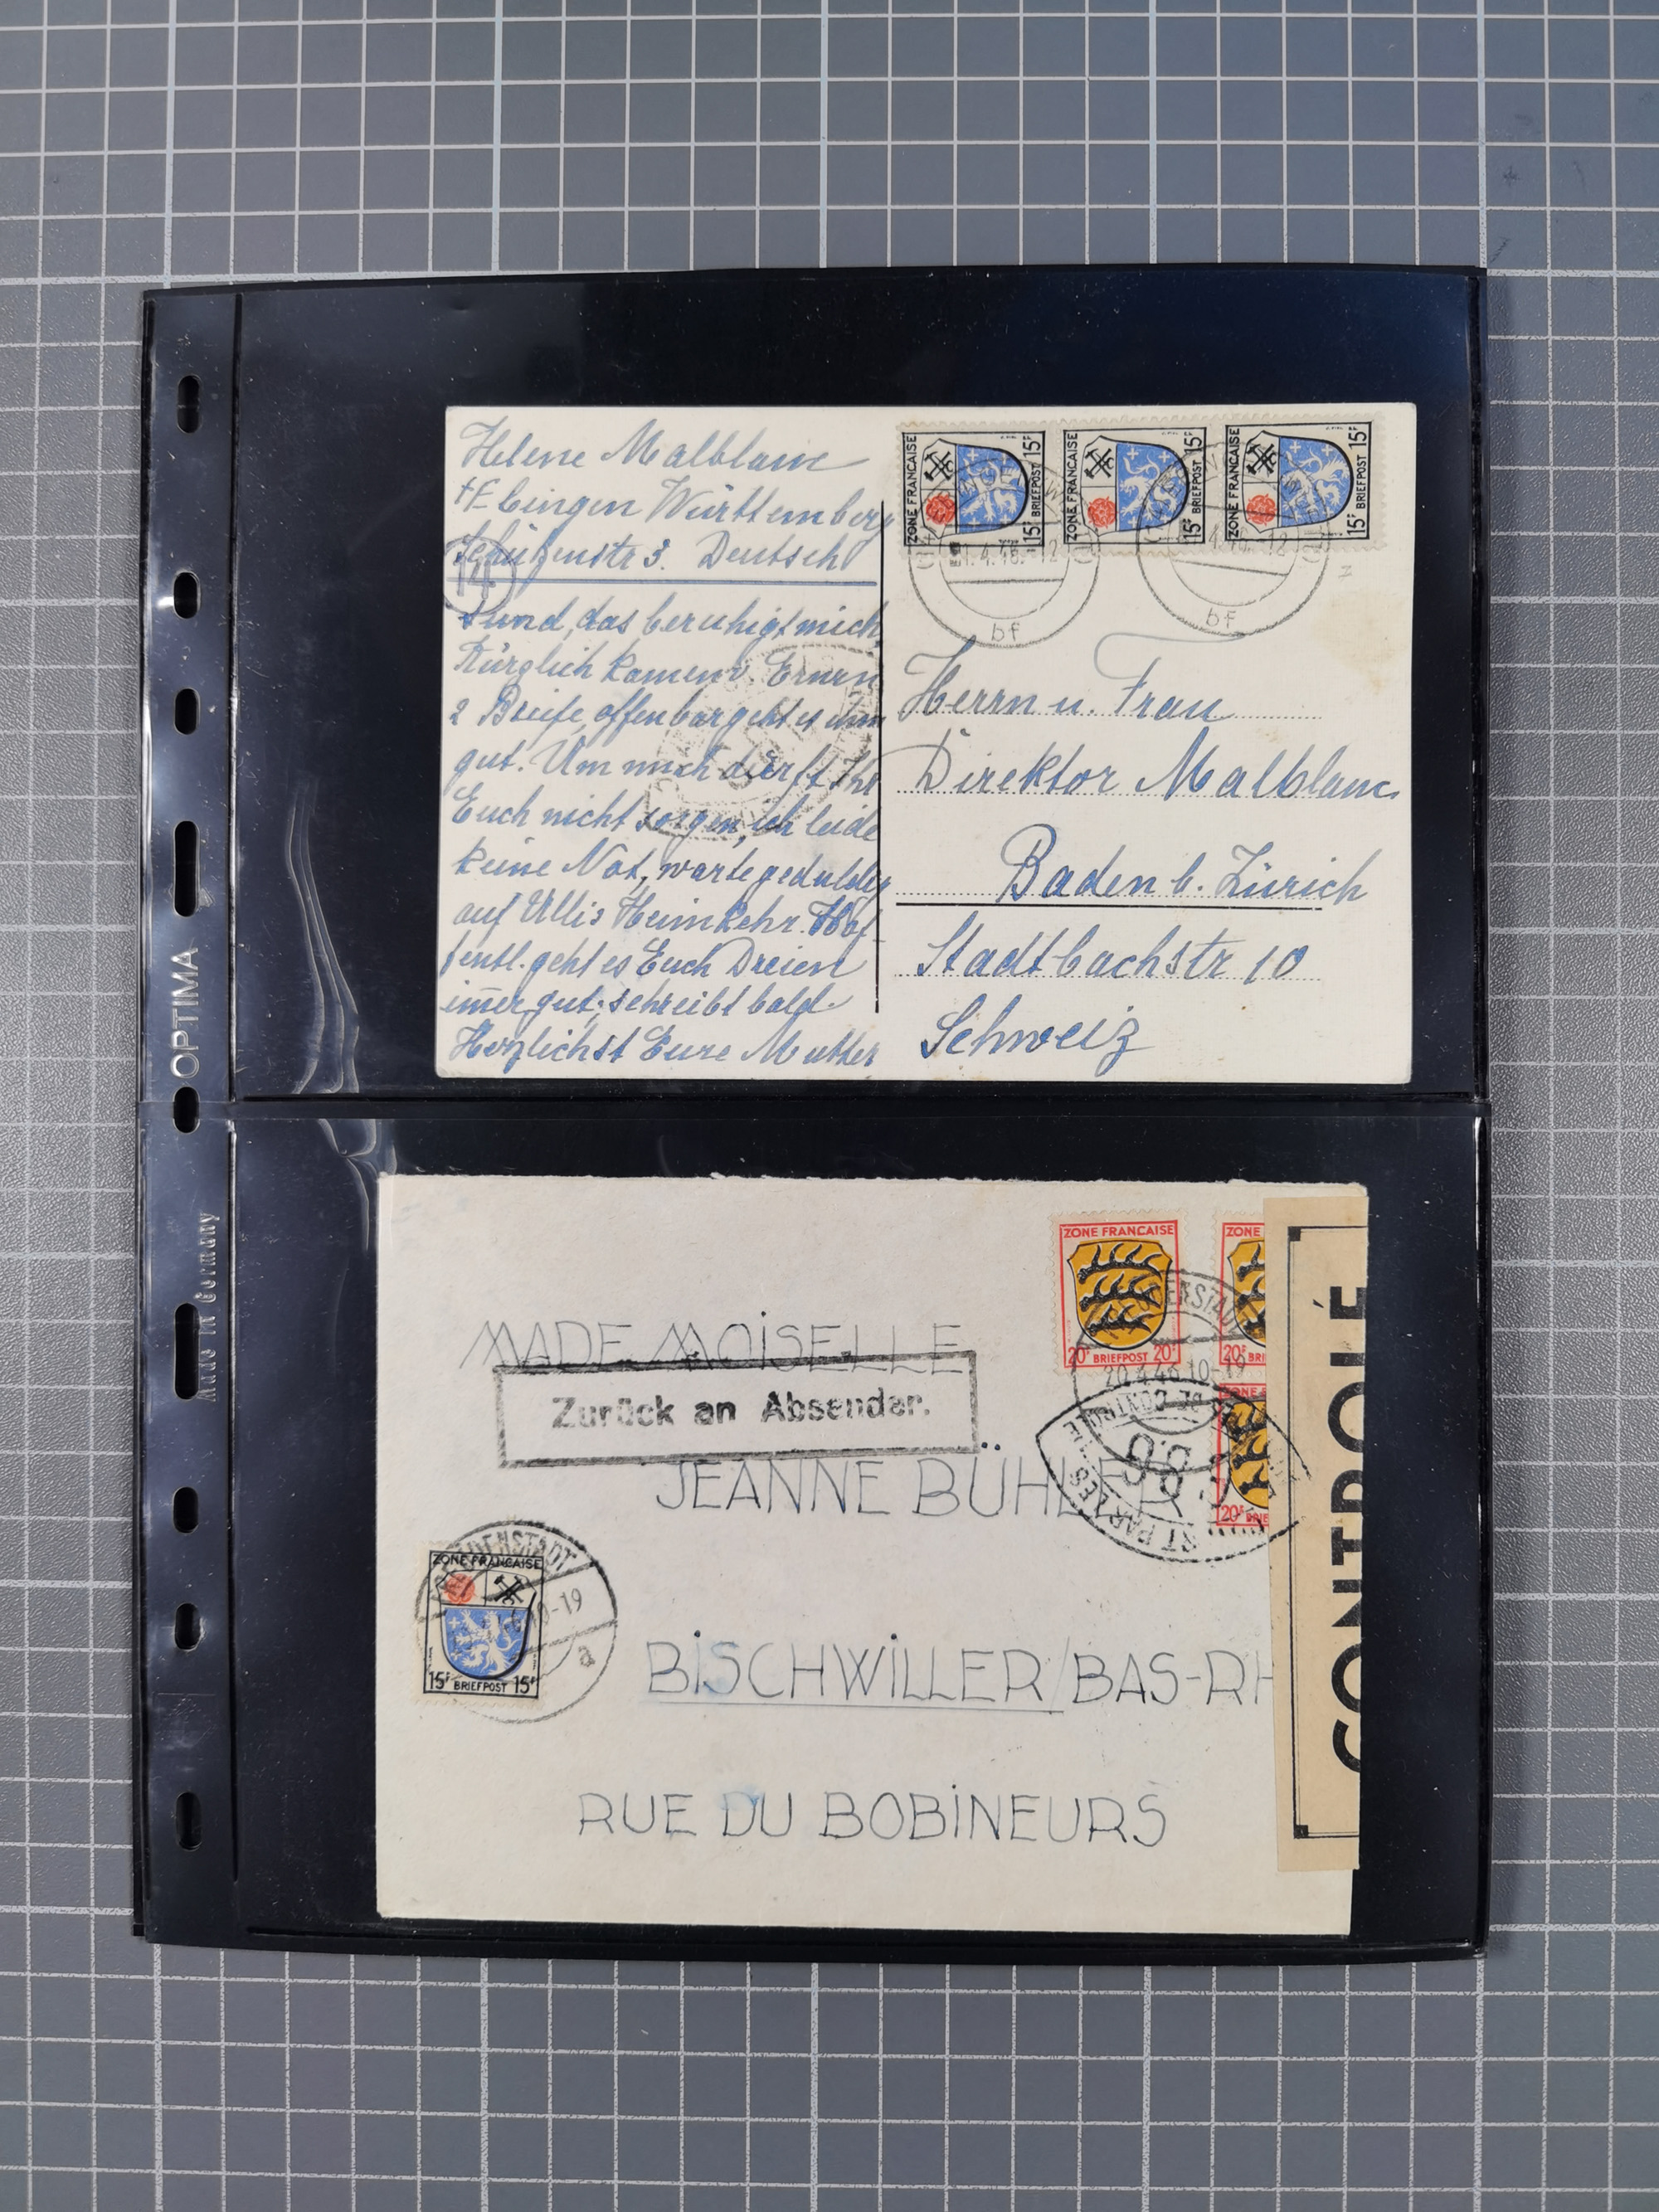 Helene Malblanc
Ebingen Württemberg
Schützenstr 3. Deutschl
14
sund, das beruhigt mich.
Kürzlich kamen v. Erwin
2 Briefe, offenbar geht es ihm
gut. Um mich dürft Ihr
Euch nicht sorgen, ich leide
keine Not, warte geduldig
auf Ullis Heimkehr. Hof
fentl. geht es Euch Dreien
immer gut; schreibt bald.
Herzlichst Eure Mutter
ZONE FRANÇAISE
15F BRIEFPOST 15F
ZONE FRANÇAISE
15F BRIEFPOST 15F
ZONE FRANÇAISE
15F BRIEFPOST 15F
bf
bf
Herrn u. Frau
Direktor Malblanc
Baden b. Zürich
Stadtbachstr 10
Schweiz
OPTIMA
Made in Germany
ZONE FRANÇAISE
20F BRIEFPOST 20F
ZONE
20F BRI
ZONE
20F BRIE
20.4.46.10-19
MADEMOISELLE
Zurück an Absender.
JEANNE BÜHLER
FREUDENSTADT
ZONE FRANÇAISE
15F BRIEFPOST 15F
-19
a
BISCHWILLER/BAS-RH
RUE DU BOBINEURS
CONTROLÉ